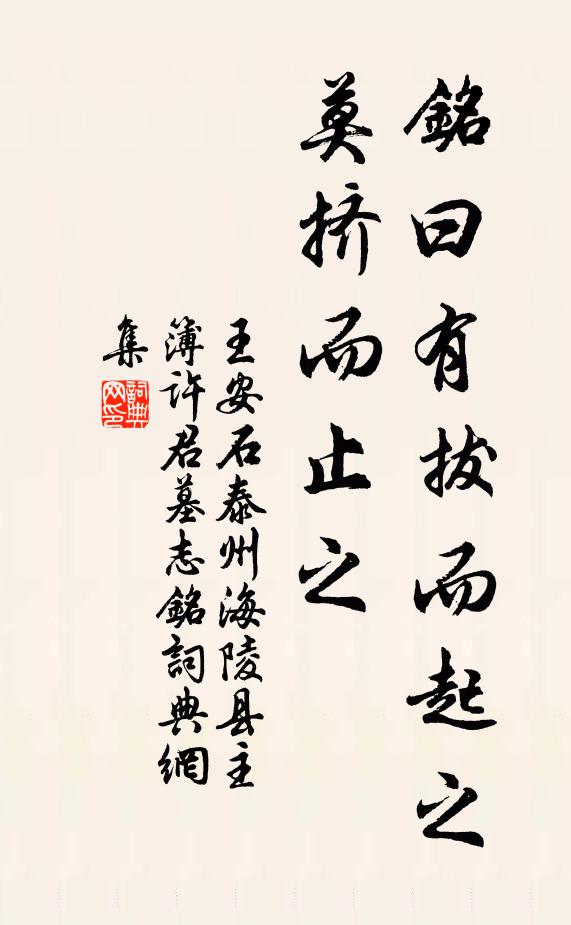 銘曰有拔而起之
莫挤而止之
王安石泰州海陵县主
簿许君墓志銘詞典網
集
詞典
网印